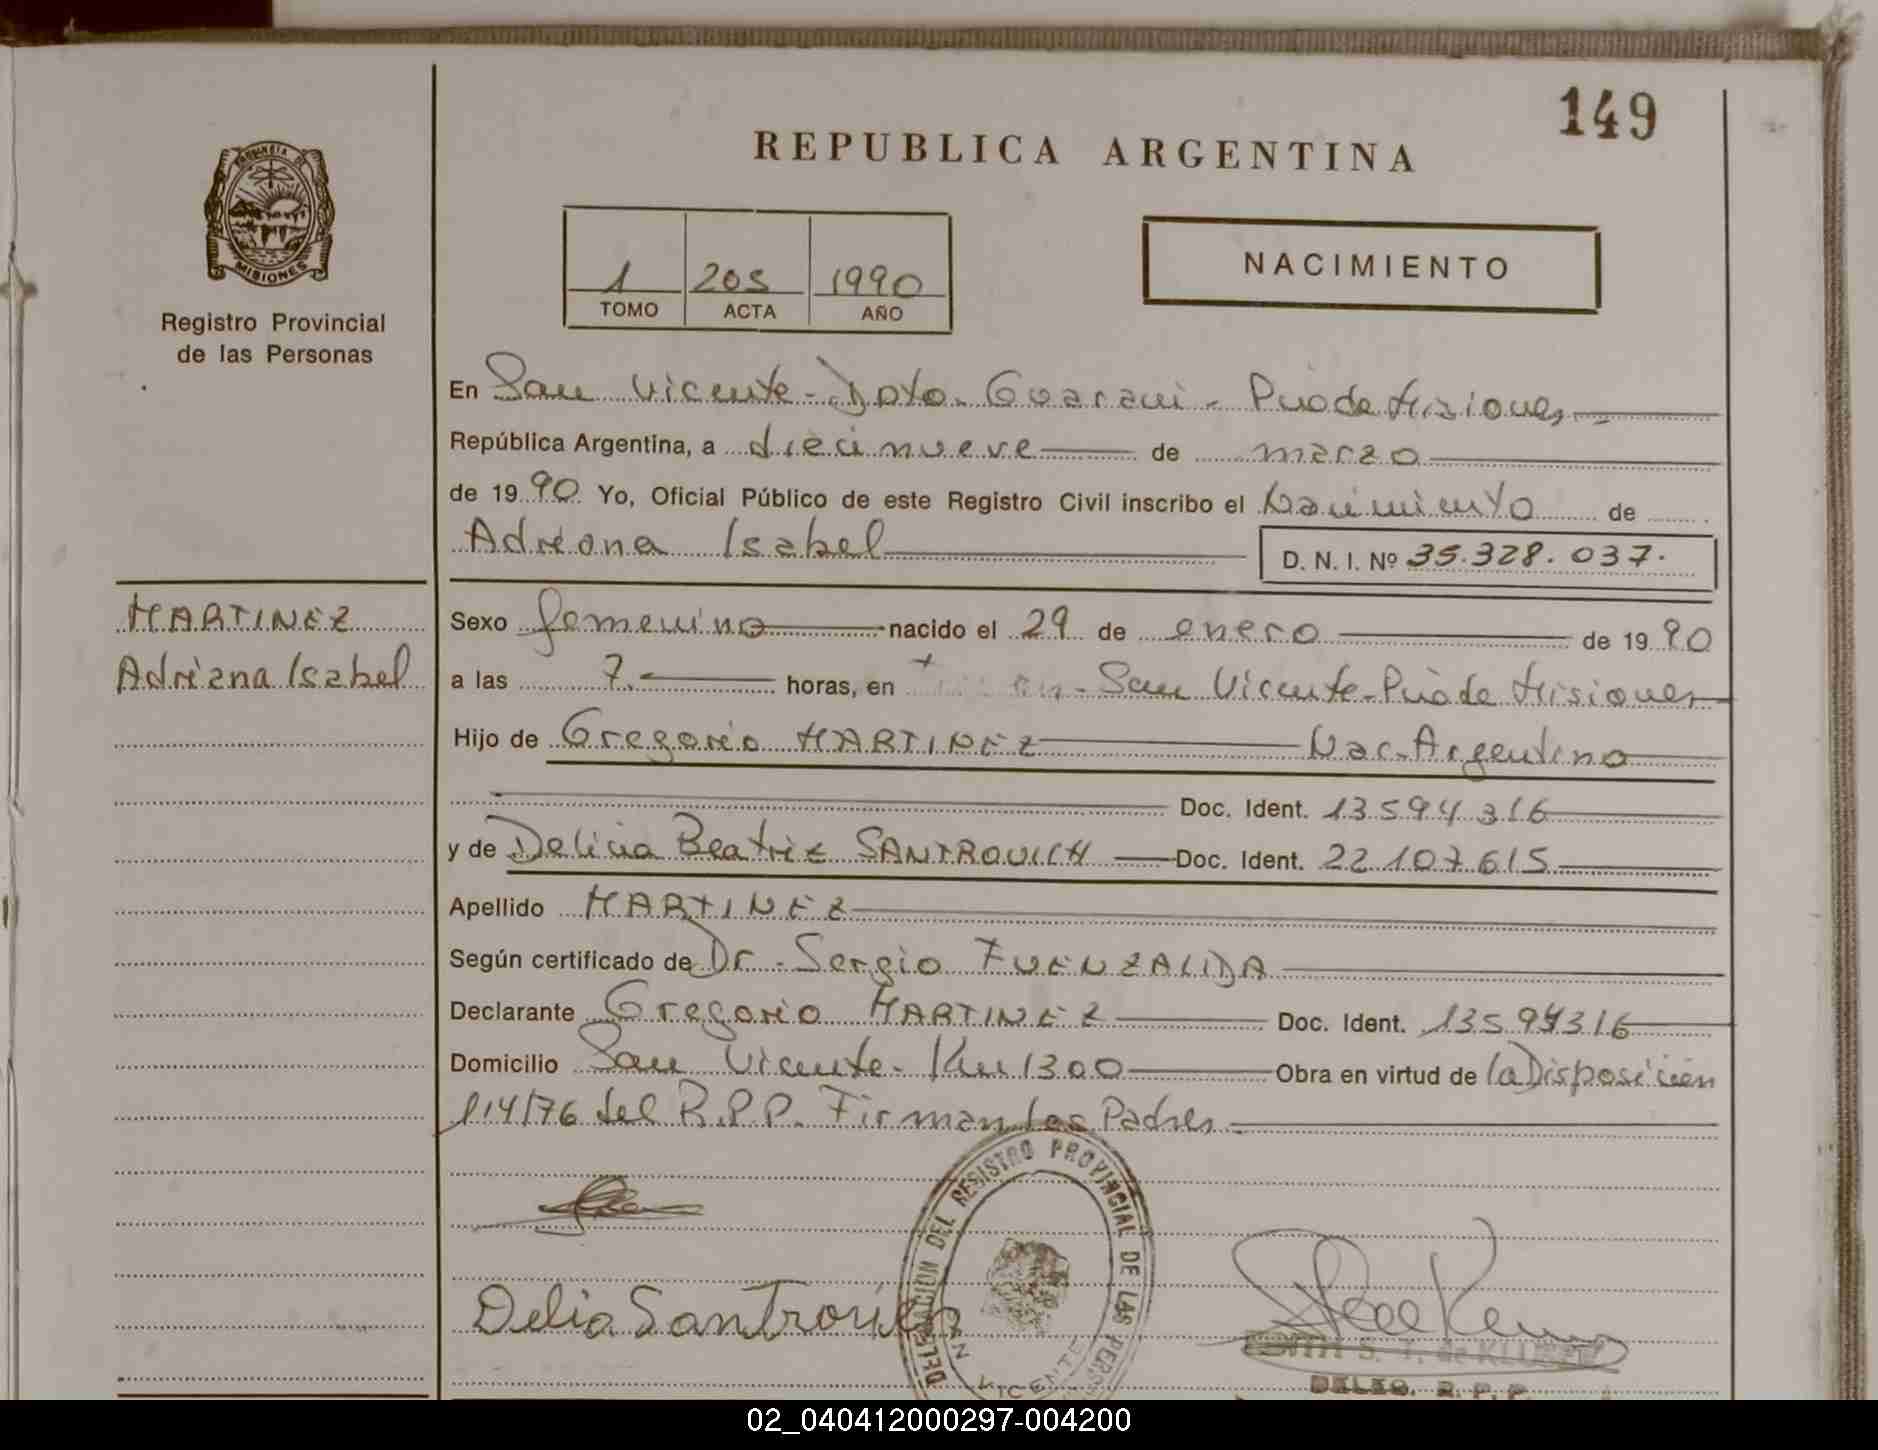 149
REPUBLICA ARGENTINA
PROVINCIA DE
MISIONES
Registro Provincial
de las Personas
1 205 1990
TOMO ACTA AÑO
NACIMIENTO
En San Vicente - Dpto. Guarani - Pcia de Misiones
República Argentina, a diecinueve de marzo
de 1990 Yo, Oficial Público de este Registro Civil inscribo el Nacimiento de
Adriana Isabel D. N. I. Nº 35.328.037.
MARTINEZ
Adriana Isabel
Sexo femenino nacido el 29 de enero de 1990
a las 7. horas, en San Vicente - Pcia de Misiones
Hijo de Gregorio MARTINEZ Nac. Argentino
Doc. Ident. 13594316
y de Delicia Beatriz SANTROVICH Doc. Ident. 22.107.615
Apellido MARTINEZ
Según certificado de Dr. Sergio FUENZALIDA
Declarante Gregorio MARTINEZ Doc. Ident. 13594316
Domicilio San Vicente - Km 1300 Obra en virtud de la Disposición
114/76 del R.P.P. Firman los Padres
DELEGACION DEL REGISTRO PROVINCIAL DE LAS
VICENTE
Delia Santrovich
S. T. de
DELEG. R. P. P.
02_040412000297-004200